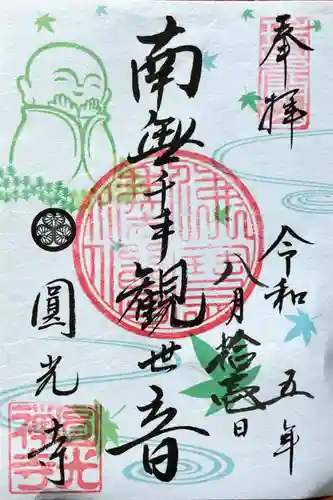 奉拝
令和五年
八月拾壱日
南無千手観世音
圓光寺